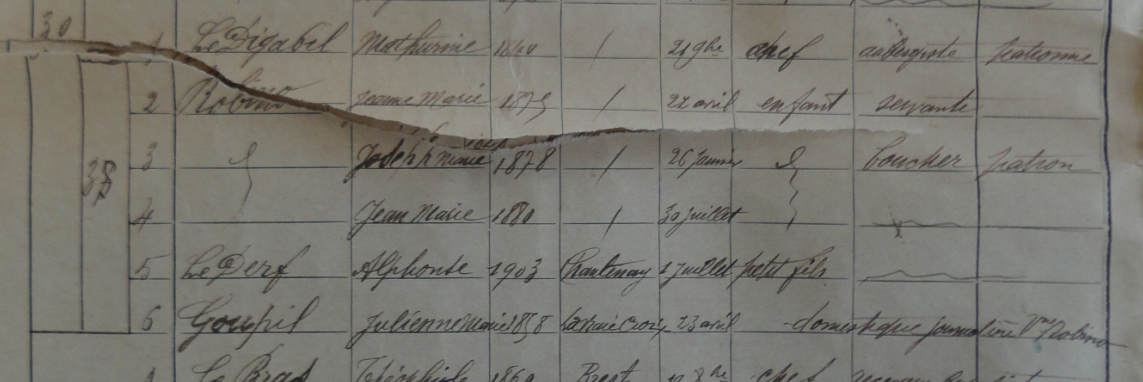 30 1 Le Digabil Mathurine 1840 / 21 9bre chef aubergiste patronne
2 Robino Jeanne Marie 1875 / 22 avril enfant servante
38 3 Joseph Marie 1878 / 26 janvier boucher patron
4 Jean Marie 1880 / 30 juillet
5 Le Derf Alphonse 1903 Chantenay 1 juillet petit fils
6 Goupil Julienne Marie 1858 23 avril domestique Vve Robino
1 Le Bras Théophile Brest chef